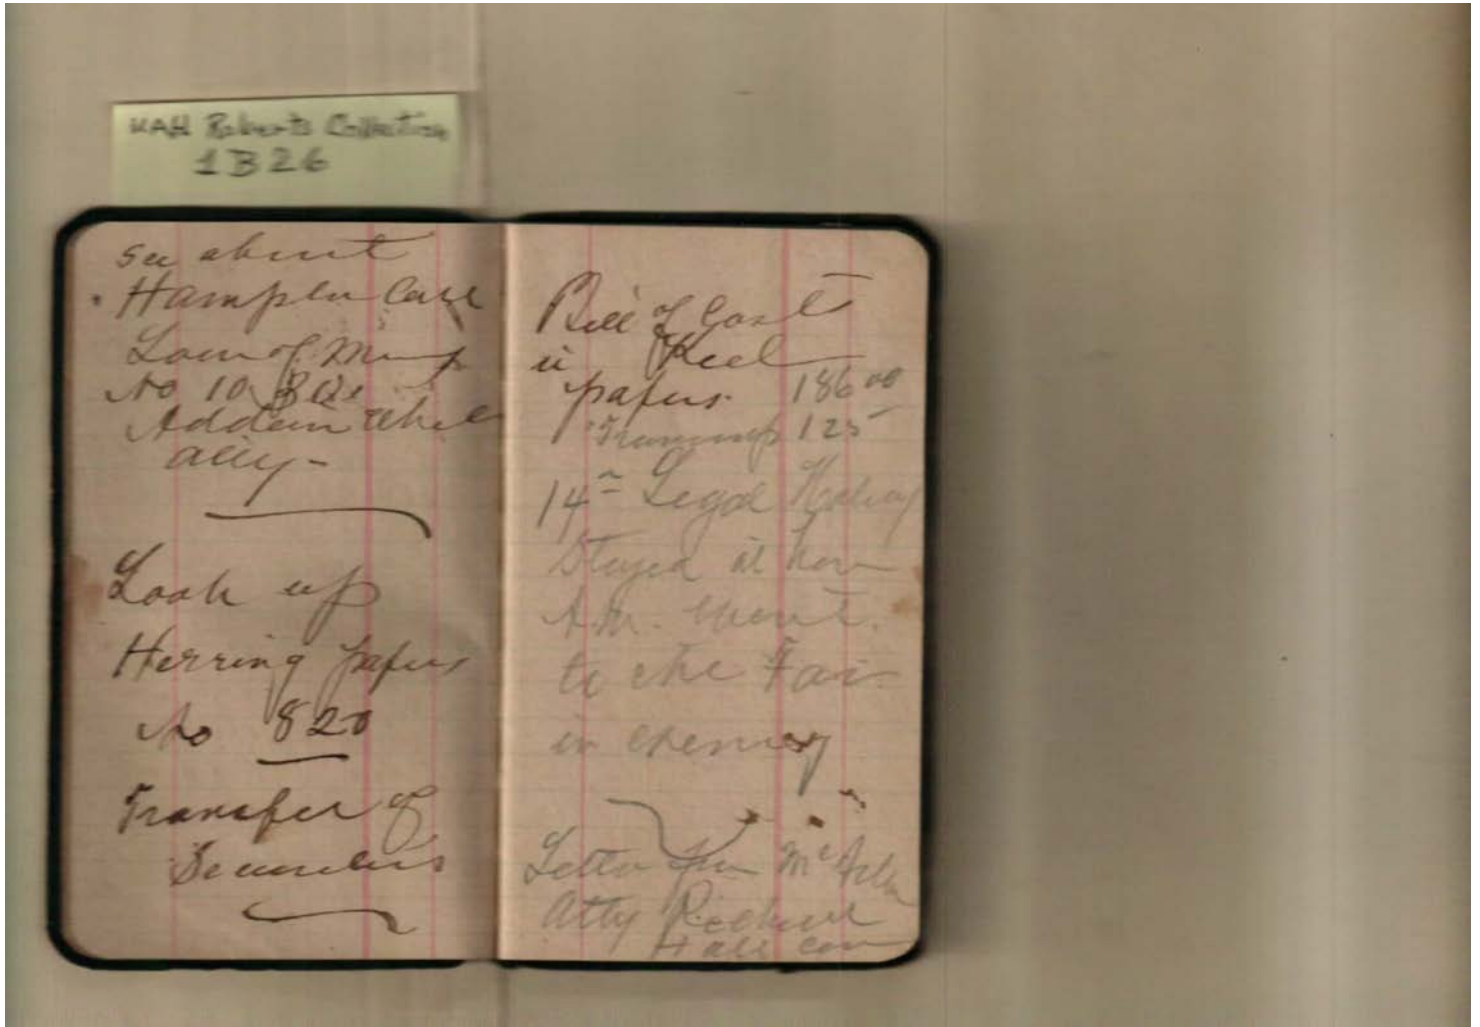 UAH Roberts Collection
1B26
See about
Hampton Case
Law of
No 10
ally -
Look up
Herring papers
No 820
Transfer of
Securities
Bill of Cost
in Keel
papers. 186 00
Transcript 125
14th Legal Holiday
Stayed at home
A.M. went
to the Fair
in evening
Letter from Mc
Atty
Hall